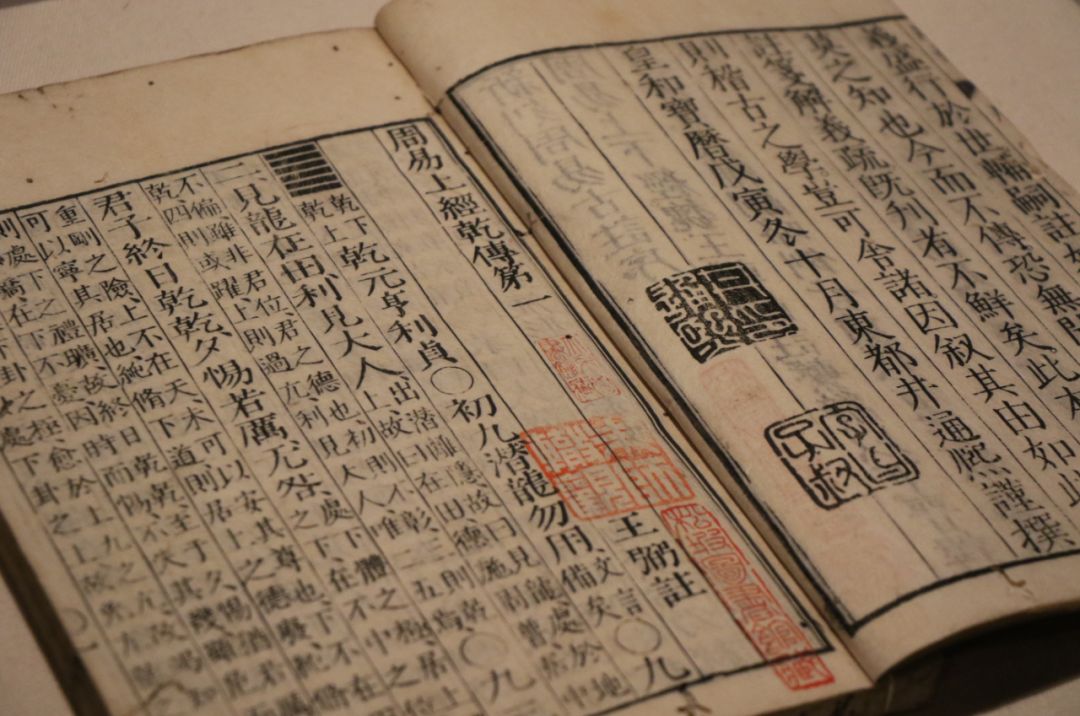 義盛行於世輔嗣註如
莫之知也今而不傳恐無聞
註箋解義疏既刋有不鮮矣此本
則稽古之學豈可舍諸因叙其由如此
皇和寶曆戊寅冬十月東都井通熙謹撰
周易上經乾傳第一
王弼註
乾下
乾上
乾元亨利貞○初九潛龍勿用
文言
備矣
○九
二見龍在田利見大人
出潛離隱故曰見龍處於地
上故曰在田德施周普居中
不偏雖非君位君之德也初則不彰三則
乾四則或躍上則過亢利見大人唯二五焉
○九
君子終日乾乾夕惕若厲无咎
處下體之極居上
之下在不中之位
重剛之險上不在天未可以安其尊也下不在
可以寧其居也純脩下道則居上之德廢純
則處下之禮曠故終日乾乾至于夕惕猶若
在下不憂因時而惕不失其幾雖危
下卦之極愈於上九之亢故竭